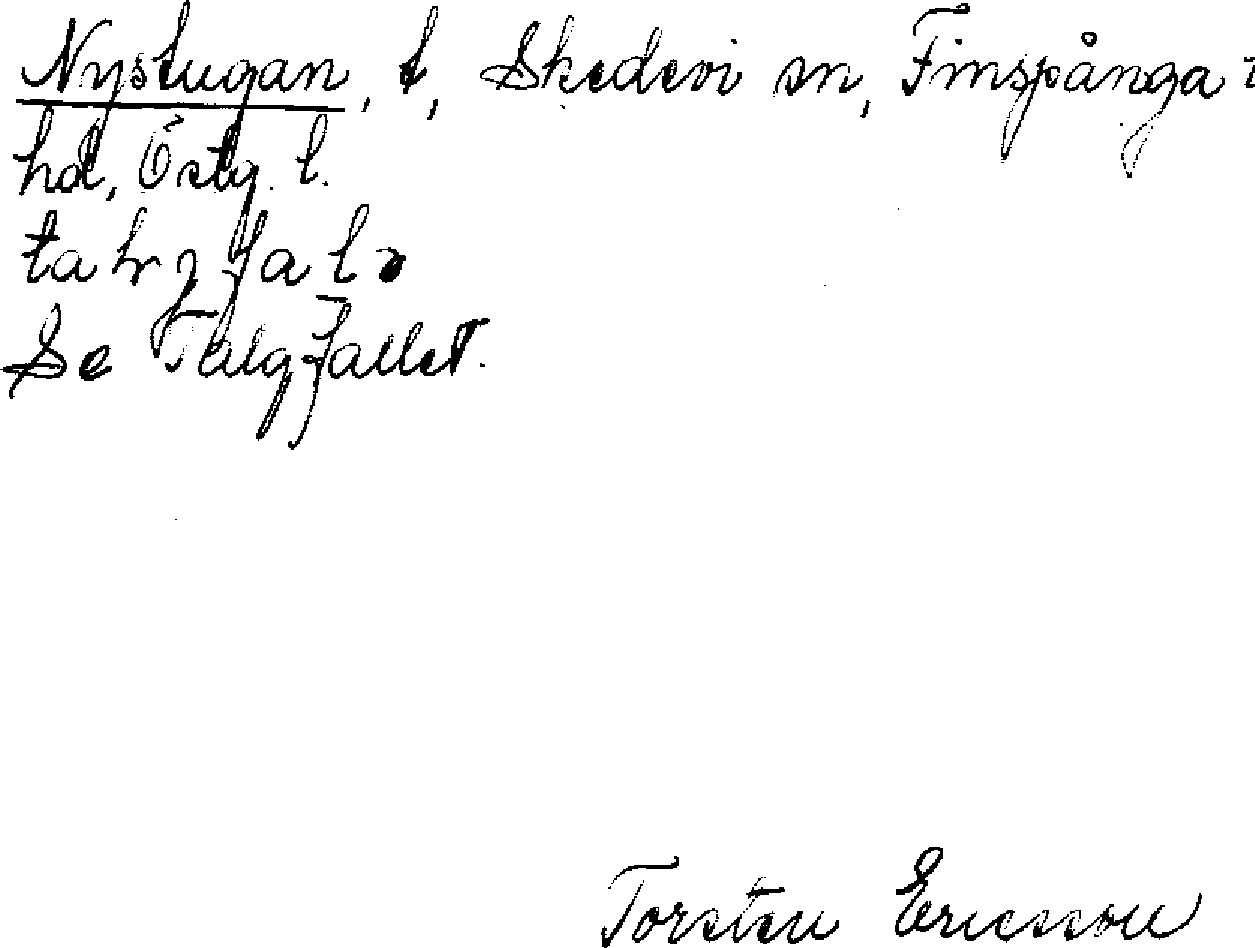 Nystugan, t, Skedevi sn, Finspånga
hd, Östg. l.
Se Talgfallet.
Torsten Ericsson